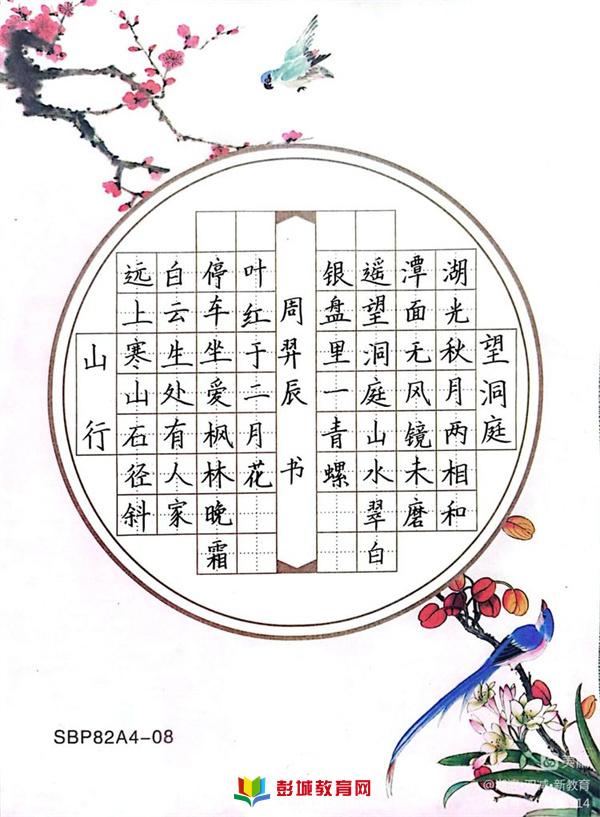 望洞庭
湖光秋月两相和
潭面无风镜未磨
遥望洞庭山水翠白
银盘里一青螺
周羿辰 书
山行
远上寒山石径斜
白云生处有人家
停车坐爱枫林晚霜
叶红于二月花
SBP82A4-08
彭城教育网
新教育